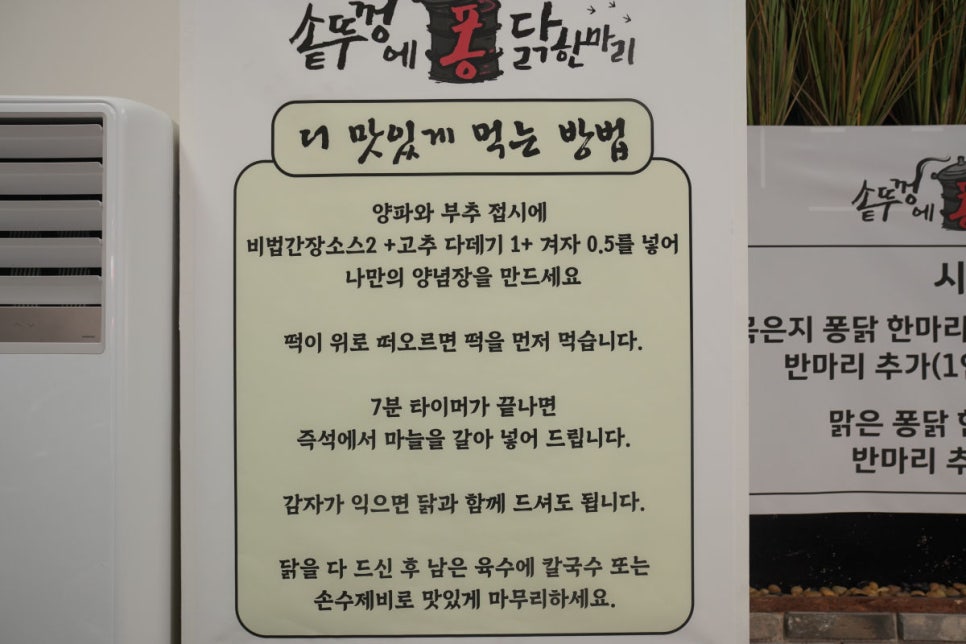 솥뚜껑에 퐁 닭한마리
더 맛있게 먹는 방법
양파와 부추 접시에
비법간장소스2 +고추 다데기 1+ 겨자 0.5를 넣어
나만의 양념장을 만드세요
떡이 위로 떠오르면 떡을 먼저 먹습니다.
7분 타이머가 끝나면
즉석에서 마늘을 갈아 넣어 드립니다.
감자가 익으면 닭과 함께 드셔도 됩니다.
닭을 다 드신 후 남은 육수에 칼국수 또는
손수제비로 맛있게 마무리하세요.
솥뚜껑에
시
묵은지 퐁닭 한마리
반마리 추가(1인
맑은 퐁닭 한
반마리 추